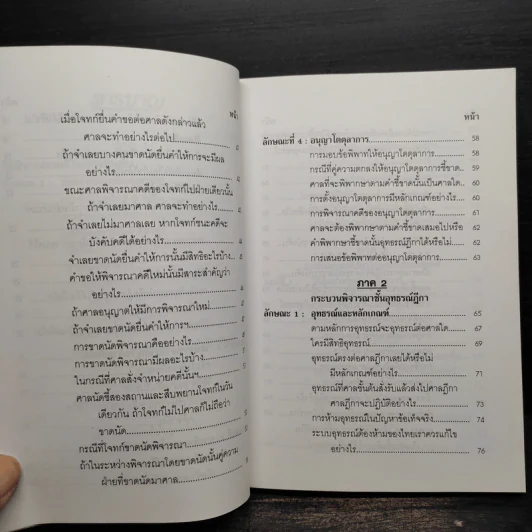 หน้า
เมื่อโจทก์ยื่นคำขอต่อศาลดังกล่าวแล้ว
ศาลจะทำอย่างไรต่อไป
ถ้าจำเลยบางคนขาดนัดยื่นคำให้การจะมีผล
อย่างไร
ขณะศาลพิจารณาคดีของโจทก์ไปฝ่ายเดียวนั้น
ถ้าจำเลยมาศาล ศาลจะทำอย่างไร
ถ้าจำเลยไม่มาศาลเลย หากโจทก์ชนะคดีจะ
บังคับคดีได้อย่างไร
จำเลยขาดนัดยื่นคำให้การนั้นมีสิทธิอะไรบ้าง
คำขอให้พิจารณาคดีใหม่นั้นมีสาระสำคัญว่า
อย่างไร
ถ้าศาลอนุญาตให้มีการพิจารณาใหม่
ถ้าจำเลยขาดนัดยื่นคำให้การฯ
การขาดนัดพิจารณาคืออย่างไร
การขาดนัดพิจารณามีผลอะไรบ้าง
ในกรณีที่ศาลสั่งจำหน่ายคดีนั้นฯ
ศาลนัดชี้สองสถานและสืบพยานโจทก์ในวัน
เดียวกัน ถ้าโจทก์ไม่ไปศาลก็ไม่ถือว่า
ขาดนัด
กรณีที่โจทก์ขาดนัดพิจารณา
ถ้าในระหว่างพิจารณาโดยขาดนัดนั้นคู่ความ
ฝ่ายที่ขาดนัดมาศาล
หน้า
ลักษณะที่ 4 : อนุญาโตตุลาการ 58
การมอบข้อพิพาทให้อนุญาโตตุลาการ 58
กรณีที่คู่ความตกลงให้อนุญาโตตุลาการชี้ขาด 59
ศาลที่จะพิพากษาตามคำชี้ขาดนั้นเป็นศาลใด 60
การตั้งอนุญาโตตุลาการมีหลักเกณฑ์อย่างไร 60
การพิจารณาคดีของอนุญาโตตุลาการ 61
ศาลจะต้องพิพากษาตามคำชี้ขาดเสมอไปหรือ 62
คำพิพากษาชี้ขาดนั้นอุทธรณ์ฎีกาได้หรือไม่ 62
การเสนอข้อพิพาทต่ออนุญาโตตุลาการ 63
ภาค 2
กระบวนพิจารณาชั้นอุทธรณ์ฎีกา
ลักษณะ 1 : อุทธรณ์และหลักเกณฑ์ 65
ตามหลักการอุทธรณ์จะอุทธรณ์ต่อศาลใด 67
ใครมีสิทธิอุทธรณ์ 69
อุทธรณ์ตรงต่อศาลฎีกาเลยได้หรือไม่
มีหลักเกณฑ์อย่างไร 71
อุทธรณ์ที่ศาลชั้นต้นสั่งรับแล้วส่งไปศาลฎีกา
ศาลฎีกาจะปฏิบัติอย่างไร 73
การห้ามอุทธรณ์ในปัญหาข้อเท็จจริง 74
ระบบอุทธรณ์ต้องห้ามของไทยเราควรแก้ไข
อย่างไร 76